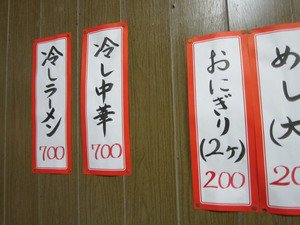 冷しラーメン
700
冷し中華
700
おにぎり(2ヶ)
200
めし(大